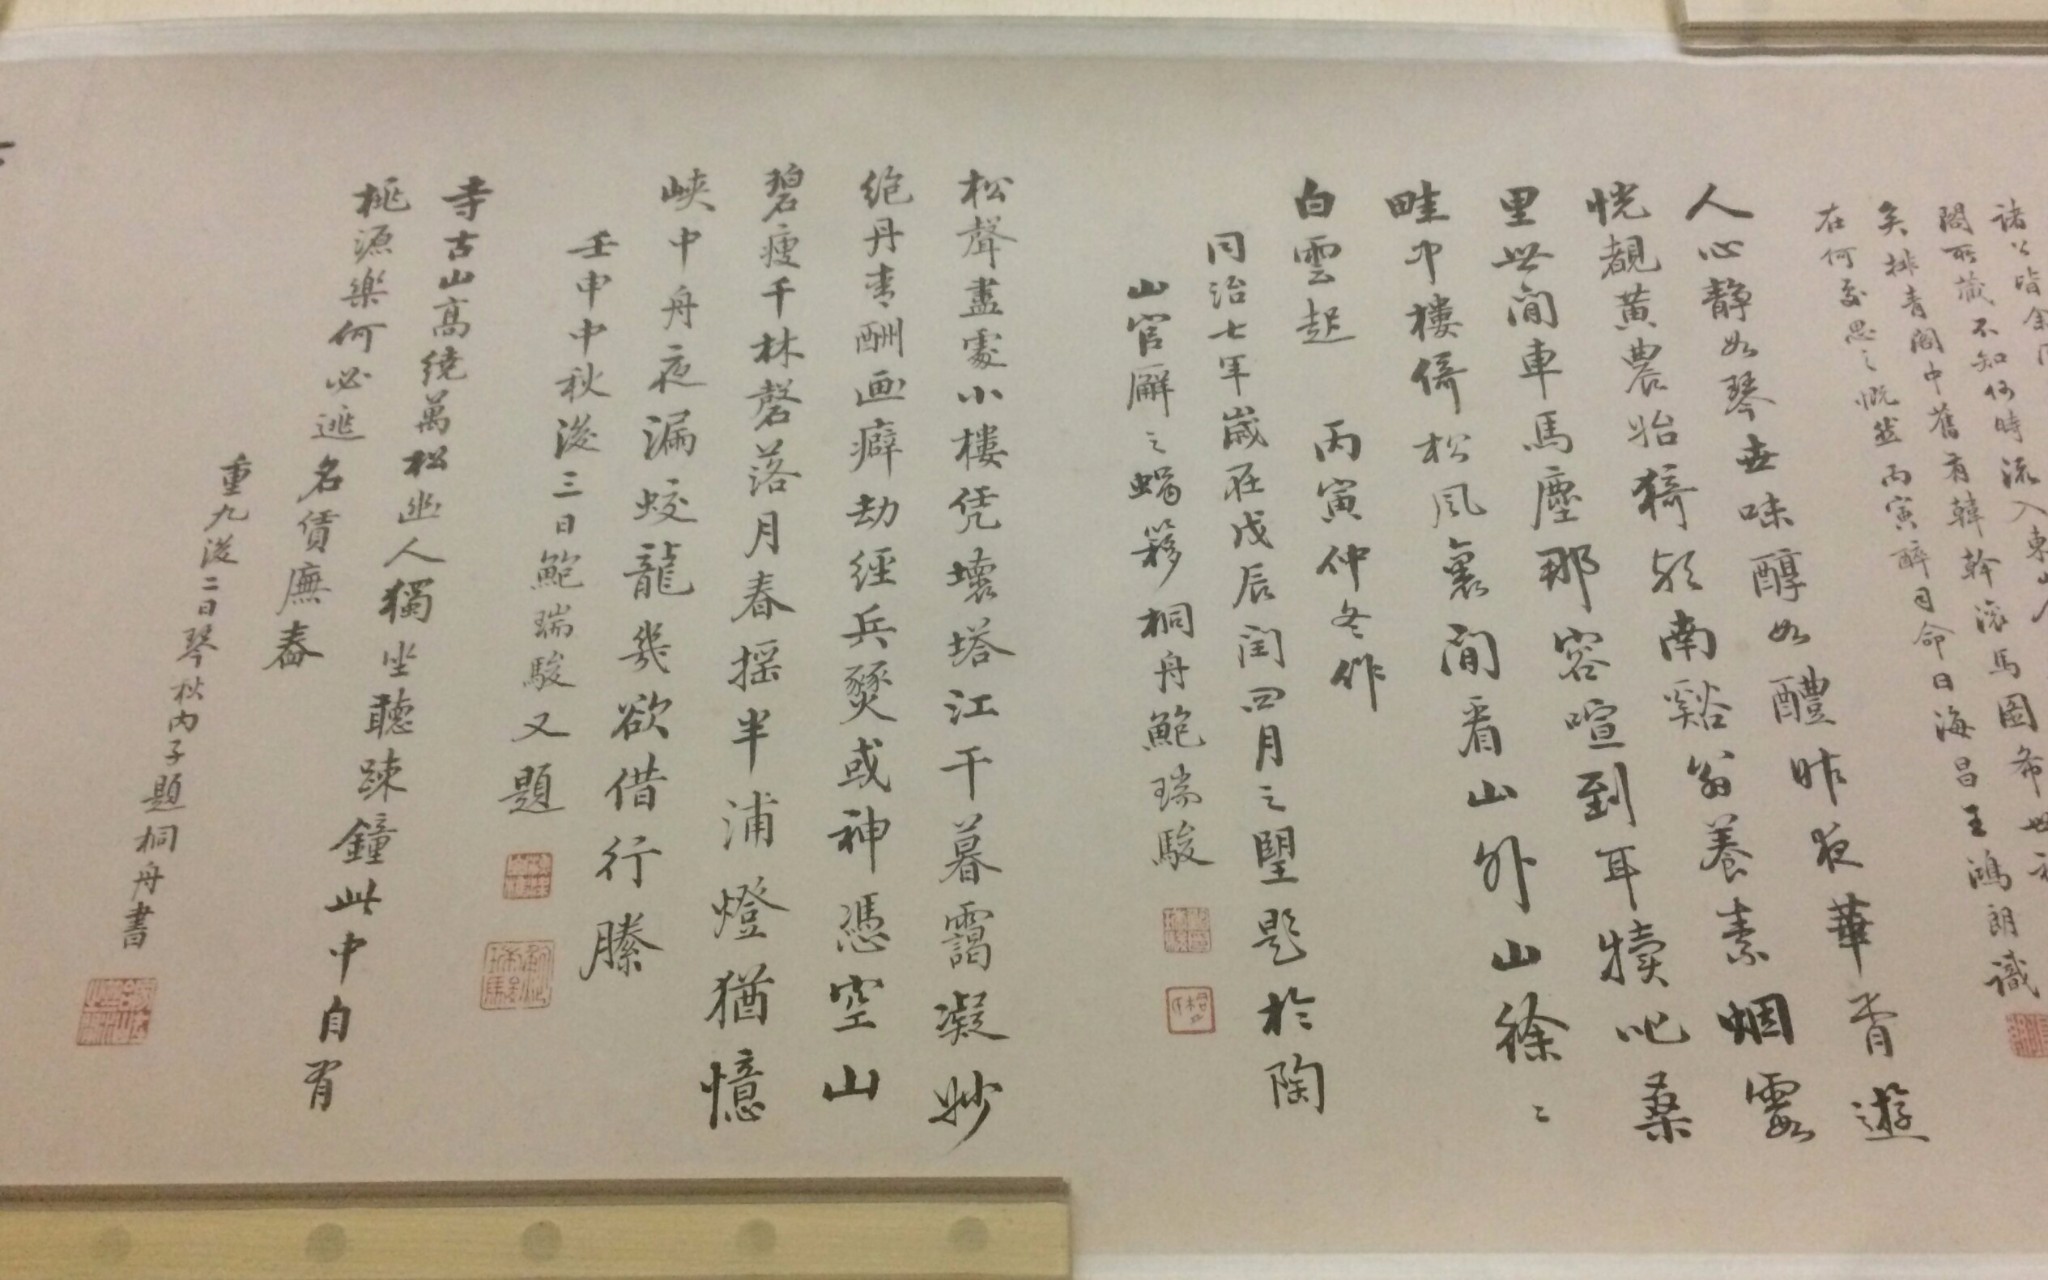 諸公皆余
閣所藏不知何時流入東
矣排青閣中舊有韓幹滾馬圖希世
在何處思之慨然丙寅醉司命日海昌王鴻朗識
人心靜如琴世味醇如醴昨夜華胥遊
恍覩黃農始猗於南谿翁養素烟霞
里世間車馬塵那容喧到耳犢叱桑
畦中樓倚松風裏間看山外山徐〻
白雲起 丙寅仲冬作
同治七年歲在戊辰閏四月之朢題於陶
山官廨之蝸簃桐舟鮑瑞駿
松聲盡處小樓凭壞塔江干暮靄凝妙
絶丹青酬画癖劫經兵燹或神憑空山
碧瘦千林磬落月春摇半浦燈猶憶
峽中舟夜漏蛟龍幾欲借行縢
壬申中秋後三日鮑瑞駿又題
寺古山高繞萬松幽人獨坐聽踈鐘此中自有
桃源樂何必逃名賃廡舂
重九後二日琴秋内子題桐舟書